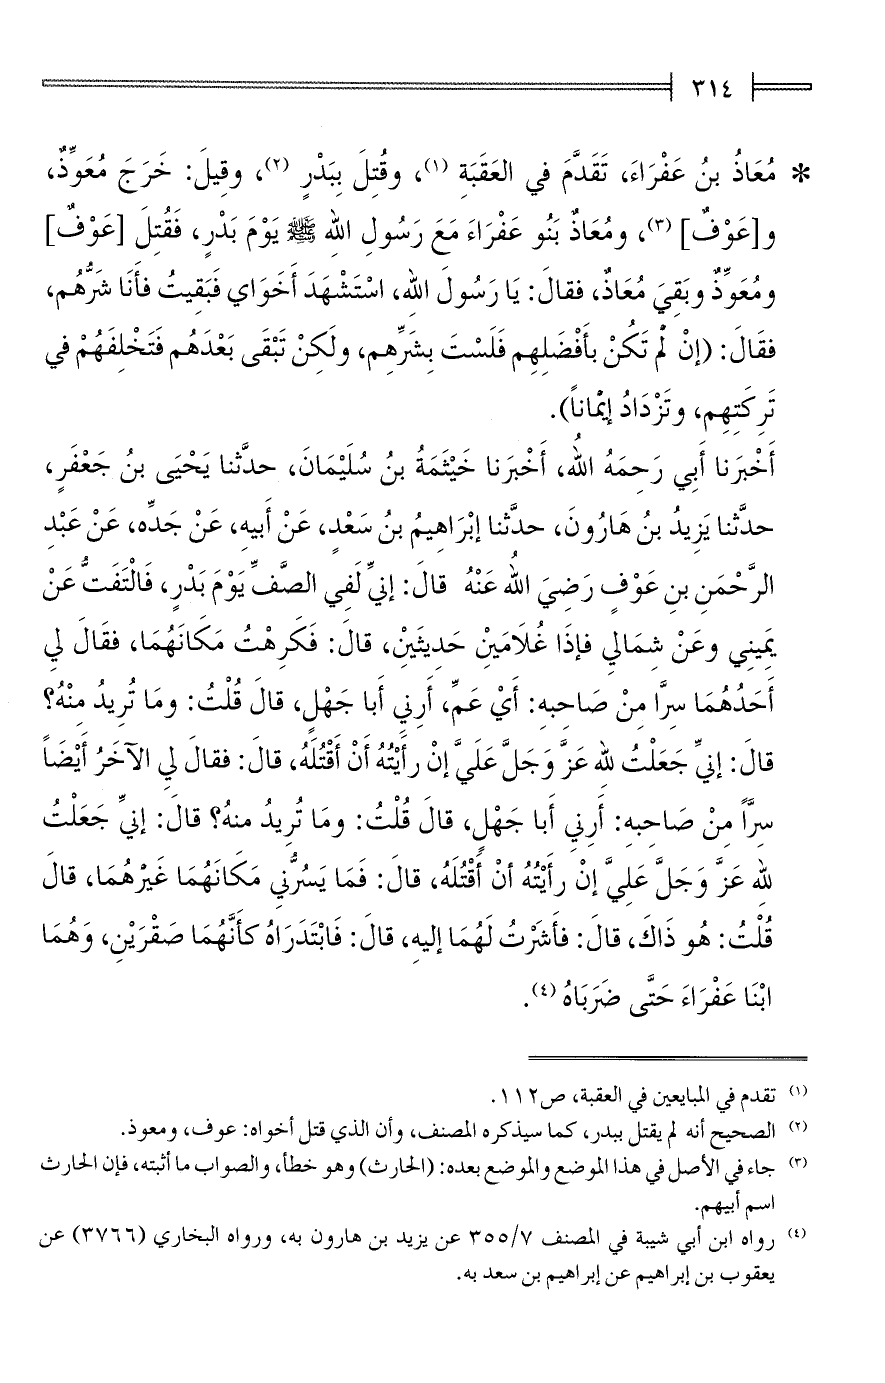 ٣١٤
* مُعَاذُ بنُ عَفْرَاءَ، تَقَدَّمَ في العَقَبَةِ (١)، وقُتِلَ بِبَدْرٍ (٢)، وقِيلَ: خَرَجَ مُعَوِّذٌ،
و[عَوْفٌ] (٣)، ومُعَاذٌ بَنُو عَفْرَاءَ مَعَ رَسُولِ الله ﷺ يَوْمَ بَدْرٍ، فَقُتِلَ [عَوْفٌ]
ومُعَوِّذٌ وبَقِيَ مُعَاذٌ، فقالَ: يَا رَسُولَ الله، اسْتَشْهَدَ أَخَوَاي فَبَقِيتُ فأَنَا شَرُّهُم،
فقَالَ: (إنْ لَمْ تَكُنْ بأَفْضَلِهِم فَلَسْتَ بِشَرِّهِم، ولَكِنْ تَبْقَى بَعْدَهُم فَتَخْلِفَهُمْ في
تَرِكَتِهِم، وتَزْدَادُ إيْمَاناً).
أَخْبَرَنا أَبي رَحِمَهُ اللهُ، أَخْبَرَنا خَيْثَمَةُ بنُ سُلَيْمَانَ، حدثَّنا يَحْيَى بنُ جَعْفَرٍ،
حدثَّنا يَزِيدُ بنُ هَارُونَ، حدثَّنا إبْرَاهِيمُ بنُ سَعْدٍ، عَنْ أَبيهِ، عَنْ جَدِّه، عَنْ عَبْدِ
الرَّحْمَنِ بنِ عَوْفٍ رَضِيَ اللهُ عَنْهُ قالَ: إنيِّ لَفِي الصَّفِّ يَوْمَ بَدْرٍ، فَالْتَفَتُّ عَنْ
يَمِينِي وعَنْ شِمَالي فإذَا غُلَامَيْنِ حَدِيثَيْنِ، قالَ: فَكَرِهْتُ مَكَانَهُمَا، فقَالَ لي
أَحَدُهُمَا سِرَّا مِنْ صَاحِبِه: أَيْ عَمِّ، أَرِني أَبا جَهْلٍ، قالَ قُلْتُ: ومَا تُرِيدُ مِنْهُ؟
قالَ: إنيِّ جَعَلْتُ لله عَزَّ وَجَلَّ عَلَيَّ إنْ رأَيْتُهُ أَنْ أَقْتُلَهُ، قالَ: فقالَ لي الآخَرُ أَيْضَاً
سِرَّاً مِنْ صَاحِبِه: أَرِني أَبا جَهْلٍ، قالَ قُلْتُ: ومَا تُرِيدُ منهُ؟ قالَ: إنيِّ جَعَلْتُ
لله عَزَّ وَجَلَّ عَليَّ إنْ رأَيْتُهُ أنْ أَقْتُلَهُ، قالَ: فَمَا يَسُرُّني مَكَانَهُمَا غَيْرُهُمَا، قالَ
قُلْتُ: هُو ذَاكَ، قالَ: فأَشَرْتُ لَهُمَا إليهِ، قالَ: فَابْتَدَرَاهُ كأَنَّهُمَا صَقْرَيْنِ، وَهُمَا
ابْنَا عَفْرَاءَ حَتَّى ضَرَبَاهُ (٤).
(١) تقدم في المبايعين في العقبة، ص١١٢.
(٢) الصحيح أنه لم يقتل ببدر، كما سيذكره المصنف، وأن الذي قتل أخواه: عوف، ومعوذ.
(٣) جاء في الأصل في هذا الموضع والموضع بعده: (الحارث) وهو خطأ، والصواب ما أثبته، فإن الحارث
اسم أبيهم.
(٤) رواه ابن أبي شيبة في المصنف ٣٥٥/٧ عن يزيد بن هارون به، ورواه البخاري (٣٧٦٦) عن
يعقوب بن إبراهيم عن إبراهيم بن سعد به.